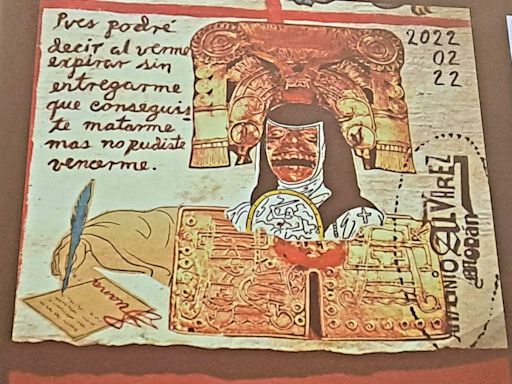 Pues podré
decir al verme
expirar sin
entregarme
que conseguis
te matarme
mas no pudiste
vencerme.
2022
02
22
ANTONIO
ALVAREZ
MORAN